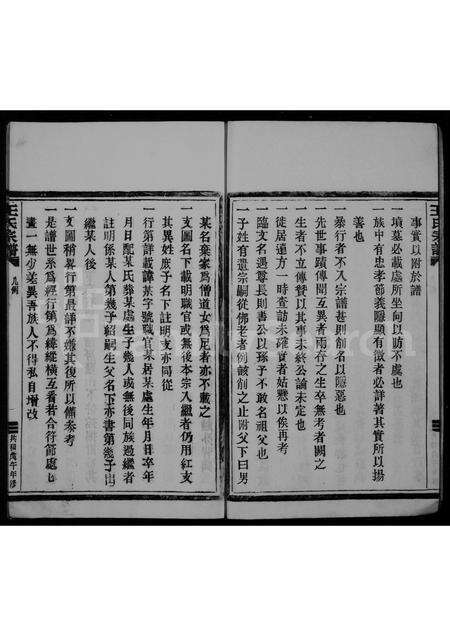 事實以附於譜
一墳墓必載處所坐向以防不虞也
一族中有忠孝節義隱顯有徵者必詳著其實所以揚
善也
一暴行者不入宗譜甚則削名以隱惡也
一先世事蹟傳聞互異者兩存之生卒無考者闕之
一生者不立傳贊以其事未終公論未定也
一徙居遠方一時查訪未確者姑懸以俟再考
一臨文名遇尊長則書公以孫子不敢名祖父也
一子姓有遺宗嗣從佛老者例該削之止附父下曰男
某名棄家爲僧道女爲尼者亦不載之
一支圖名下載明職官或無後本宗入繼者仍用紅支
其異姓庶子名下註明支亦同從
一行第詳載諱某字號職官某居某處生年月日卒年
月日配某氏葬某處生子幾人或無後同族過繼者
註明係某人第幾子紹嗣生父名下亦書第幾子出
繼某人後
一支圖稍畧行第最詳不嫌其復所以備參考
一是譜世系爲經行第爲緯縱橫互看若合符節處處
畫一無少差異吾族人不得私自增改
王氏宗譜
凡例
民國戊午年修